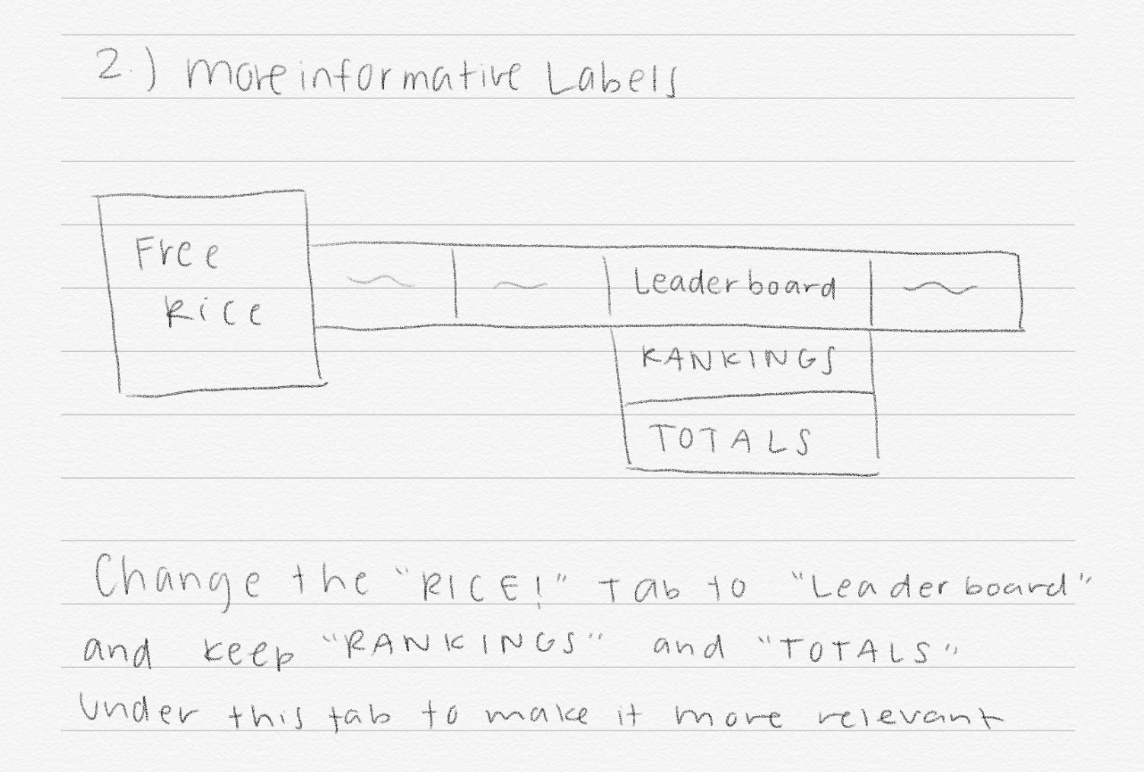 2.) More informative Labels
Free
Rice
Leaderboard
RANKINGS
TOTALS
Change the "RICE!" Tab to "Leaderboard"
and keep "RANKINGS" and "TOTALS"
under this tab to make it more relevant